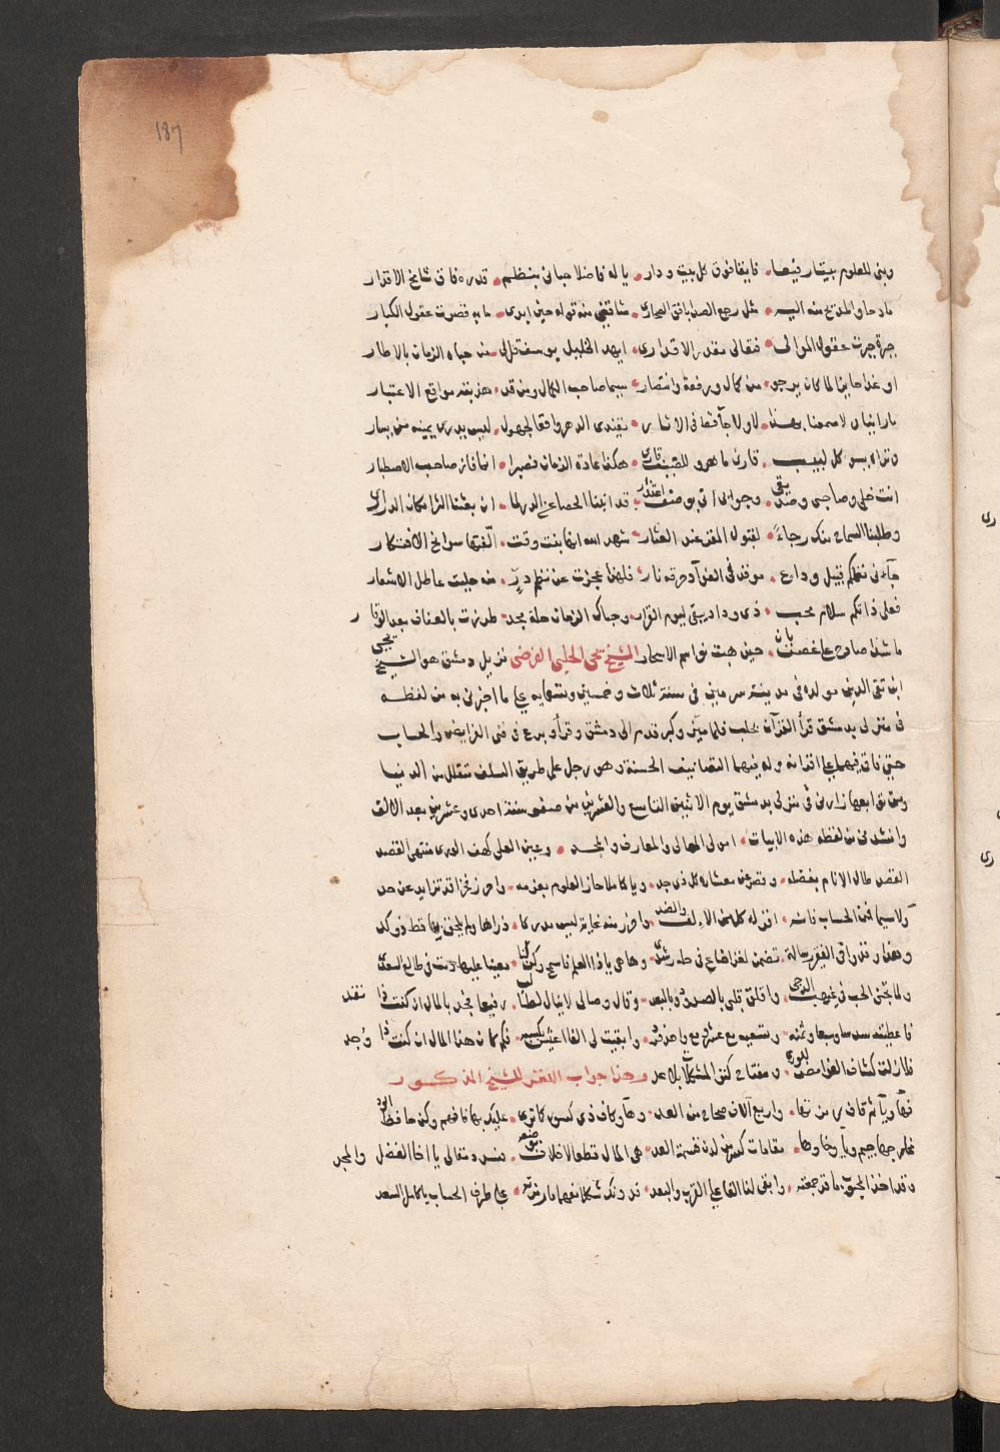 187
وبنى للعلوم بيتا رفيعا • فايقا فوق كل بيت ودار • يا له فاضلا حباني بنظم • قدره فاق شامخ الاقدار
مادحا والمدح منه اليه • مثل رجع الصدا بافق البحاري • شاقني منه قوله حين ابدى • ما به قصرت عقول الكبار
عقول الموالي • فتعالى مقدر الاقدار • ايهد الخليل يوسف من حباه الزمان بالاطار
او غدا حايزا لما كان يرجو • من كمال ورفعة وانتصار • سيما صاحب الكمال ومن قد • هذبته مواقع الاعتبار
ما راينا ولا سمعنا بهذا • لا ولا جآنا في الاثار • يفتدى الدهر وافعا لجهول • ليس يدرى يمينه من يسار
وتراه يسو كل لبيب • قارن ماهر وللضيف قارى • هكذا عادة الزمان فصبرا • انما فاز صاحب الاصطبار
انت خلي وصاحبي وصديقي • وجوابي اتى بوصف اعتذار • قد ابنا الحصا عن الدر لما • ان بعثنا الثرا مكان الدراري
وطلبنا السماح منك رجاء • لقبول المغر عند العثار • شهد الله انها بنت وقت • الفتها سوانح الافتكار
جآءني نظمكم قبيل وداع • موقد في الفؤاد حرقة نار • فلهذا عجزت عن نظم در • منه حليت عاطل الاشعار
فعلى ذاتكم سلام محب • ذي وداد يبقى ليوم القرار • وحباك الزمان حلة مجد • طرزت بالعفاف بعد الوقار
ما شدا صادح على غصن بان • حين هبت نواسم الاسحار الشيخ يحيى الحلبي الفرضي نزيل دمشق هو الشيخ يحيى
ابن تقي الدين مولده في مدينة سرمين في سنة ثلاث وخمسين وتسعمايه على ما اخبرني به من لفظه
في منزلي بدمشق قرأ القرآن بحلب فلما ميز وكبر قدم الى دمشق وقرأ وبرع في فني الفرايض والحساب
حتى فاق فيهما على اقرانه وله فيهما التصانيف الحسنة وهو رجل على طريق السلف متقلل من الدنيا
ومن توابعها زارني في منزلي بدمشق يوم الاثنين التاسع والعشرين من صفر سنة احدى وعشرين بعد الالف
وانشدني من لفظه هذه الابيات • امولى المعالي والمعارف والمجد • وعين العلى كهف الورى منتهى القصد
لقد طال الانام بفضله • وقصر عن معشاره كل ذي جد • ويا كاملا حاز العلوم بعزمه • واحرز فخرا قد تزايد عن حد
ولا سيما فن الحساب فانه • اقر له كل من الالف والضد • واحرز منه غاية ليس مدركا • ذراها ولم يلحق بها قط ذو كد
وهذا رقد وافى الفقير رسالة • تضمن لغزا ضاع في حله رشدي • وها هي يا ذا العلم فاسمح وكن لنا • معينا عليها دمت في طالع السعد
ولما تجنى الحب في غيهب الدجى • واقلق قلبي بالصدود وبالبعد • وقال وصالي لا ينال لطالب • رفيعا مجد بالمال ان كنت ذا نقد
فاعطيته سدسا وسبعا وثمنه • وتسعيه مع عشر وابقيت لي الفا • فكم كان هذا المال ان كنت ذا وجد
فلا زلت كشاف الغوامض للورى • ومفتاح كنز المشكلات بلا عد وهذا جواب اللغز للشيخ المذكور
واربع آلاف صحاح من العد • وهآ وكاف ذي كسور كما ترى • عليك بها فافهم وكن حافظ الود
مخارجها جيم • مقامات كسر من لدن قسمة العد • هي المال قطعا لا خلاف بوضعه • يا اخا الفضل والمجد
وقد اخذ المحبوب ما قد جمعته • وابقى لنا الفا على القرب والبعد • فدونك شكلا • على طرف الحساب يا كامل السعد